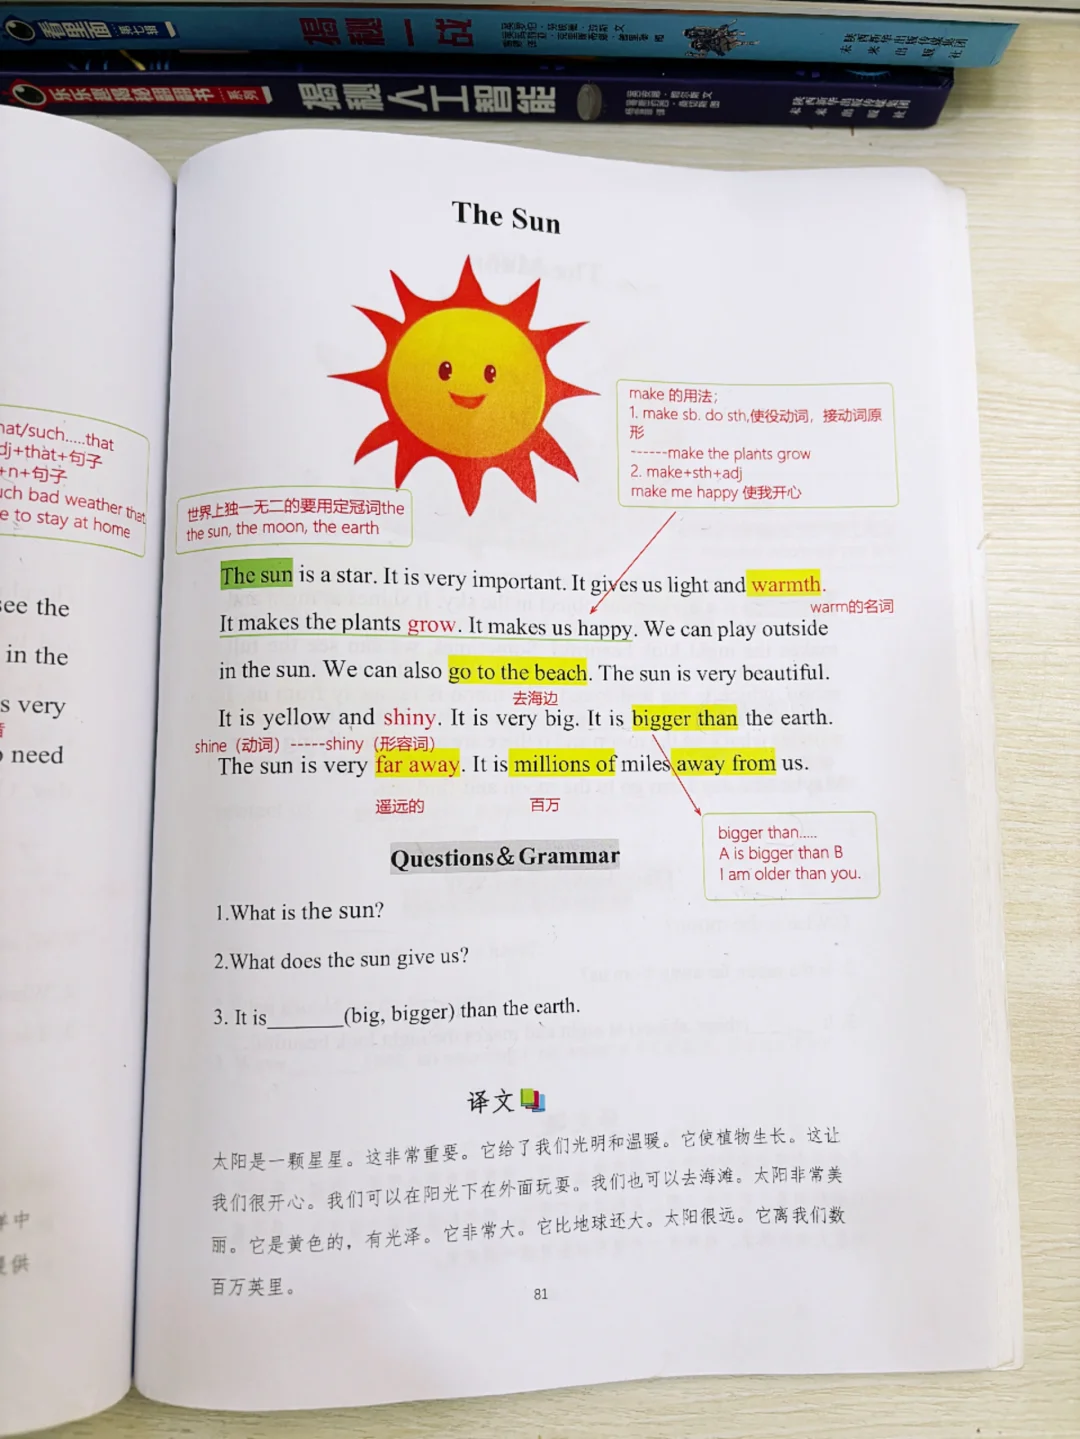 看里面 第七辑
揭秘一战
陕西新华出版传媒集团
未来出版社
乐乐趣揭秘翻翻书 系列
揭秘人工智能
陕西新华出版传媒集团
未来出版社
hat/such.....that
dj+that+句子
+n+句子
uch bad weather that
e to stay at home
see the
in the
s very
need
The Sun
make 的用法;
1. make sb. do sth,使役动词，接动词原
形
------make the plants grow
2. make+sth+adj
make me happy 使我开心
世界上独一无二的要用定冠词the
the sun, the moon, the earth
The sun is a star. It is very important. It gives us light and warmth.
warm的名词
It makes the plants grow. It makes us happy. We can play outside
in the sun. We can also go to the beach. The sun is very beautiful.
去海边
It is yellow and shiny. It is very big. It is bigger than the earth.
shine（动词）-----shiny（形容词）
The sun is very far away. It is millions of miles away from us.
遥远的
百万
bigger than.....
A is bigger than B
I am older than you.
Questions&Grammar
1.What is the sun?
2.What does the sun give us?
3. It is_______(big, bigger) than the earth.
译文
太阳是一颗星星。这非常重要。它给了我们光明和温暖。它使植物生长。这让
我们很开心。我们可以在阳光下在外面玩耍。我们也可以去海滩。太阳非常美
丽。它是黄色的，有光泽。它非常大。它比地球还大。太阳很远。它离我们数
百万英里。
81